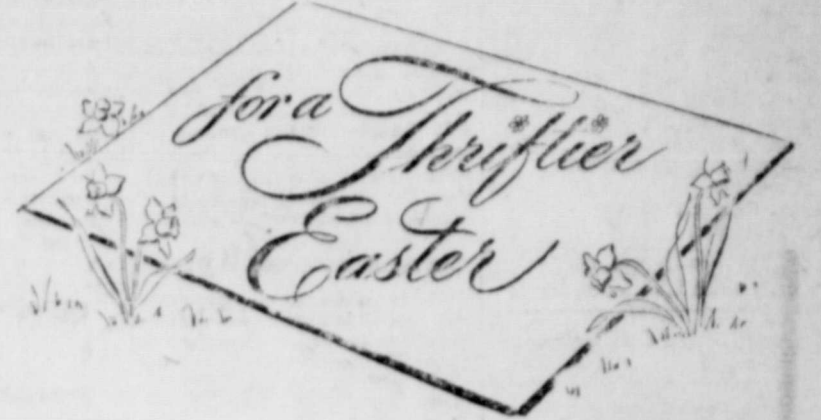 for a Thriftier
Easter